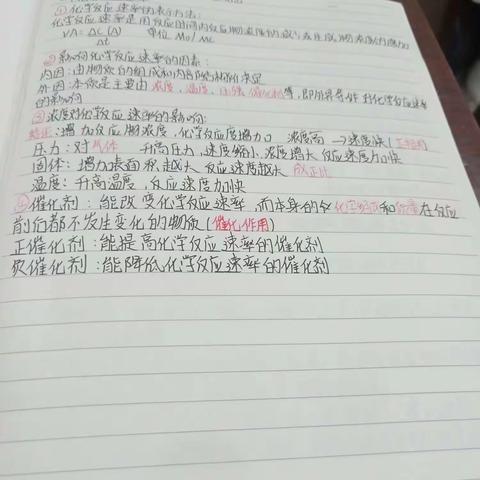 ①化学反应速率的表示方法:
化学反应速率是用反应时间内反应物浓度的减少或生成物浓度的增加
VA = ΔC(A) 单位 Mo/MC
Δt
②影响化学反应速率的因素:
内因:由物质的组成和内部的结构决定
外因:本质是主要由浓度、温度、压强、催化剂等,即外界条件对化学反应速率
的影响
③浓度对化学反应速率的影响:
结论:增加反应物浓度,化学反应度增加 浓度高→速度快(
压力:对气体 升高压力,速度缩小,浓度增大 反应速度加快
固体:增加表面积越大 反应速度越大 成正比
温度:升高温度,反应速度加快
④催化剂:能改变化学反应速率,而本身的 化学性质和质量在反应
前后都不发生变化的物质(催化作用)
正催化剂:能提高化学反应速率的催化剂
负催化剂:能降低化学反应速率的催化剂